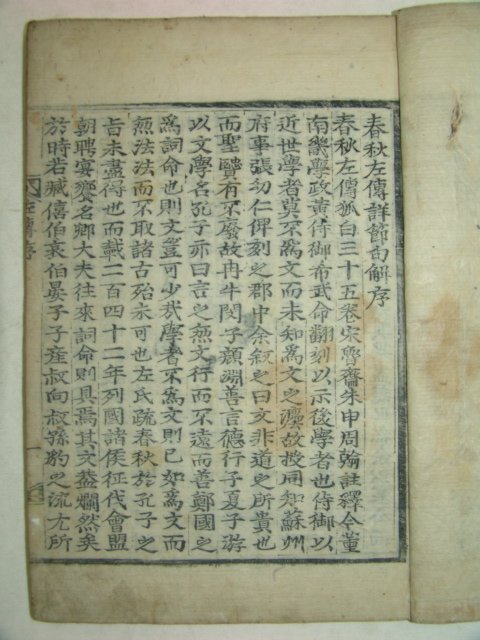 春秋左傳詳節句解序
春秋左傳狐白三十五卷宋魯齋朱申周翰註釋今董
南畿學政黃侍御希武命翻刻以示後學者也侍御以
近世學者莫不爲文而未知爲文之灋故授同知蘇州
府事張幼仁俾刻之郡中余叙之曰文非道之所貴也
而聖贒有不廢故冉牛閔子顔淵善言德行子夏子游
以文學名孔子亦曰言之無文行而不遠而善鄭國之
爲詞命也則文豈可少哉學者不爲文則已如爲文而
無法法而不取諸古殆未可也左氏疏春秋於孔子之
旨未盡得也而載二百四十二年列國諸侯征伐會盟
朝聘宴饗名卿大夫往來詞命則具焉其文葢爛然矣
於時若臧僖伯哀伯晏子子產叔向叔孫豹之流尤所
左傳序
一